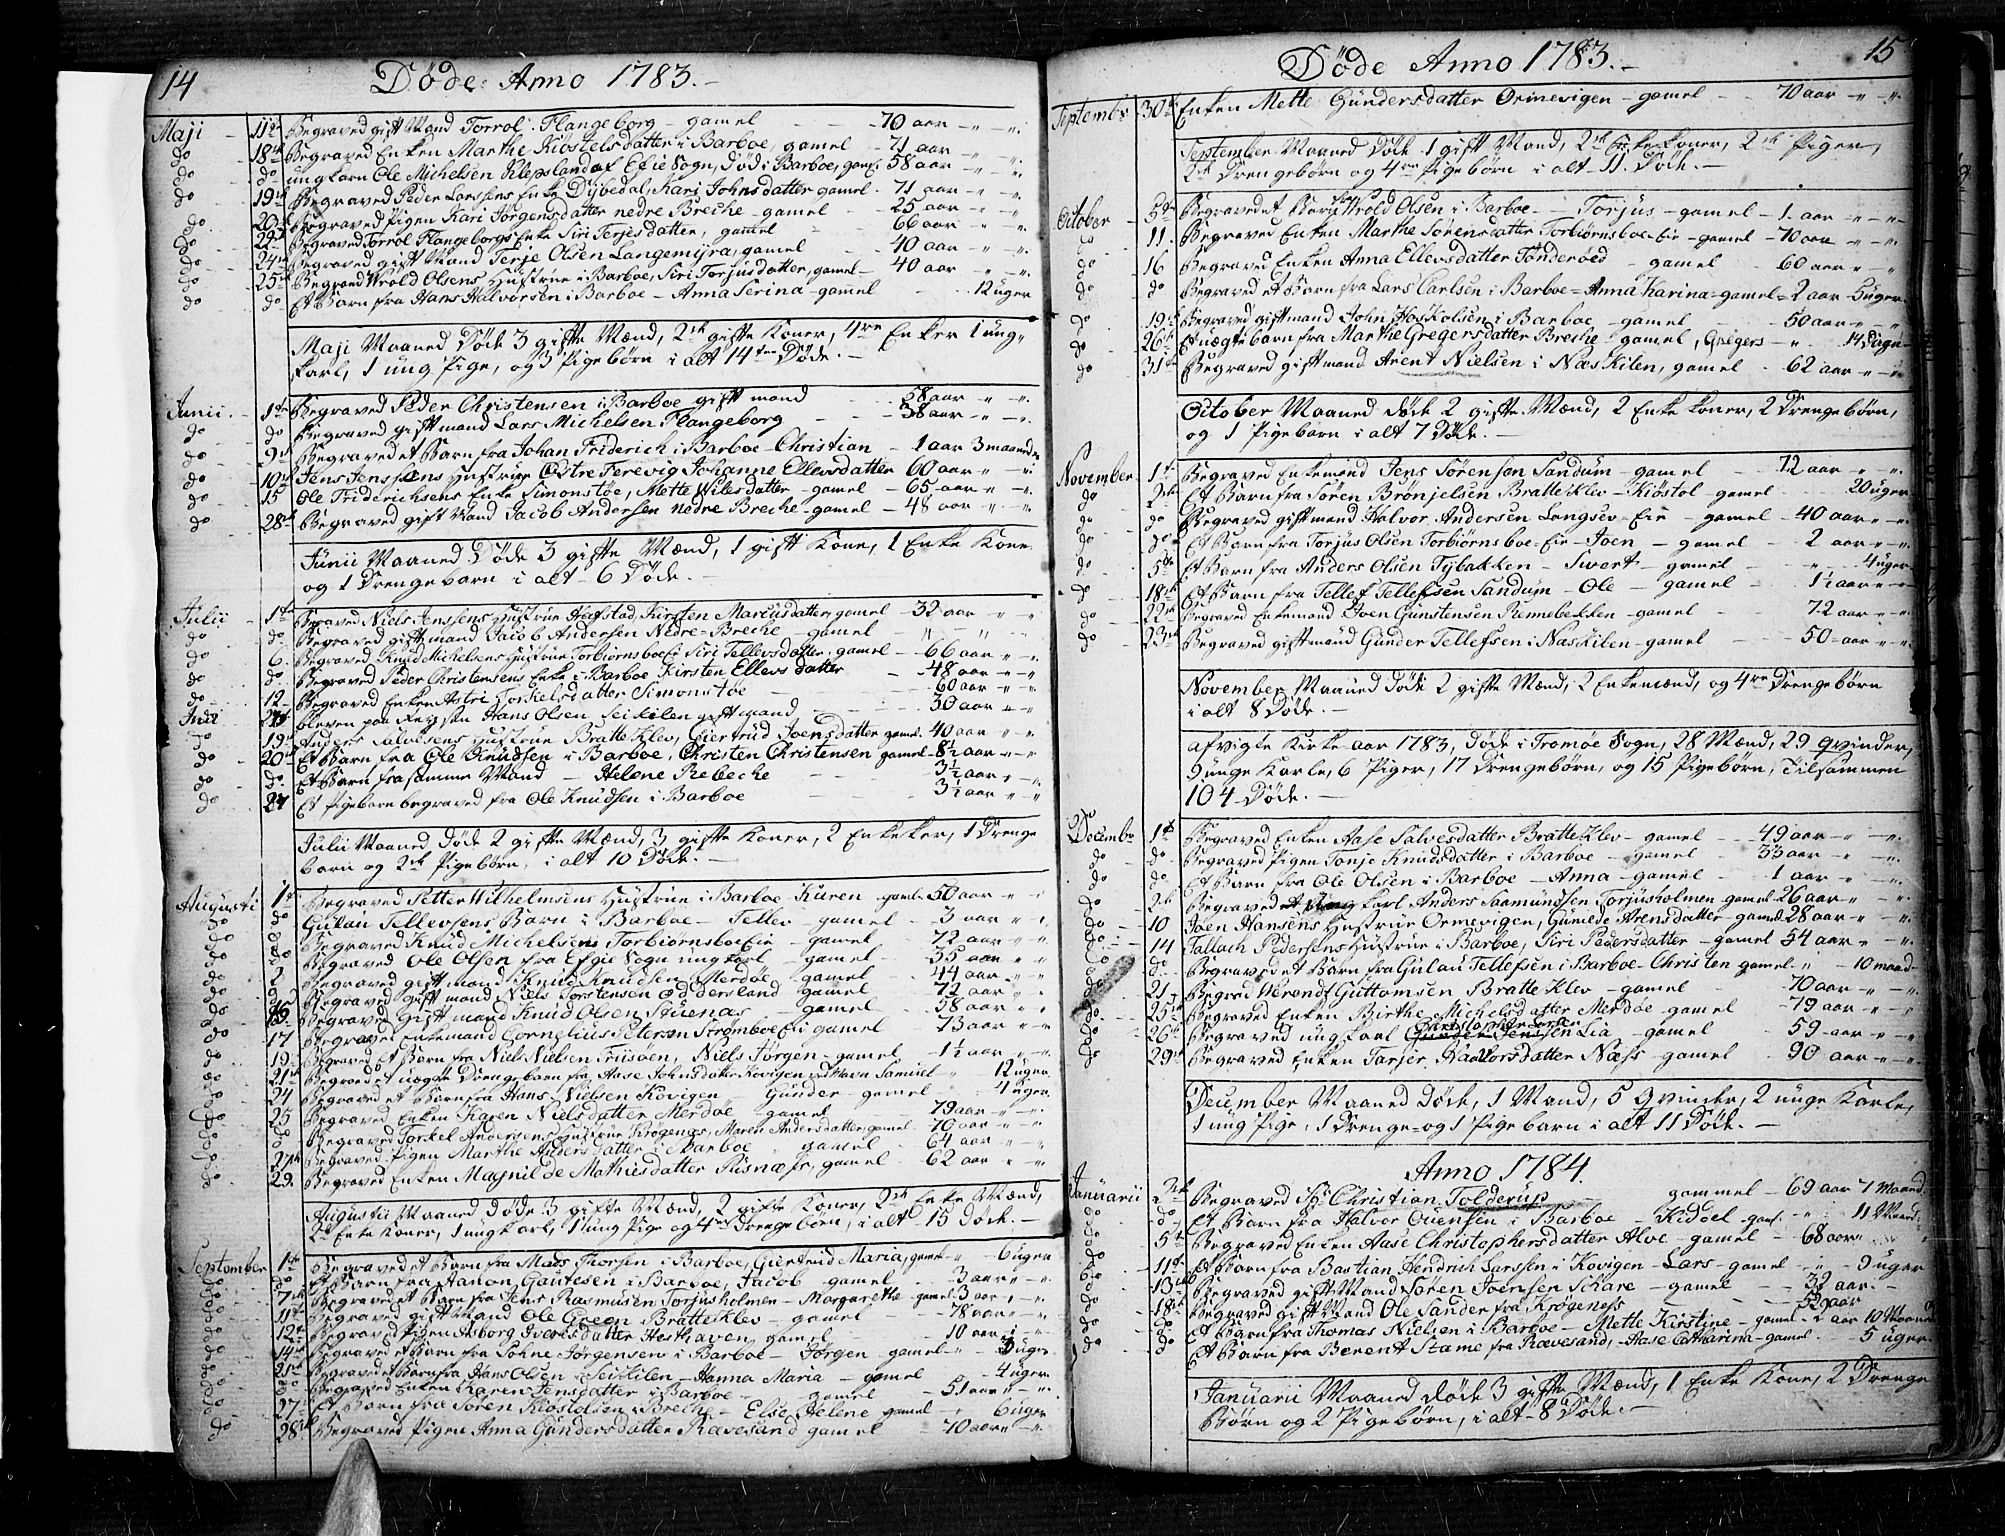 14 Døde Anno 1783.-
Maji - 11te Begraved gift Mand Torrol Flangeborg - gamel - 70 aar
do 18de Begraved Enken Marthe Kiøstelsdatter i Barboe, gamel - 71 aar
do do ung karn Ole Michelsen Klepsland af Efie Sogn, Død i Barboe, gaml. 58 aar
do 19de Begraved Peder Larssens Enke Dybedal, Kari Johnsdatter gamel - 71 aar
do 20de Begraved Pigen Kari Jørgensdatter nedre Breche - gamel - 25 aar
do Begraved Torrol Flangeborgs Enke Siri Terjesdatter, gamel - 66 aar
do 24de Begraved gift Mand Terje Olsen Langemyra, gamel - 40 aar
do 25de Begraved Wrold Olsens Hustrue i Barboe, Siri Torjusdatter, gamel - 40 aar
do do Et Barn fra Hans Halvorsen i Barboe - Anna Serina - gamel - 12 uger
Maji Maaned Døde 3 gifte Mænd, 2de gifte Koner, 4re Enker 1 ung-
karl, 1 ung Pige, og 3 Pigebørn i alt 14ten Døde.-
Junii - 1te Begraved Peder Christensen i Barboe gift mand - 58 aar
do do Begraved gift mand Lars Michelsen Flangeborg - 38 aar
do 9de Begraved et Barn fra Johan Friderich i Barboe Christian - 1 aar 3 maaneder
do 10de Jens Jenssens Hustrue Østre Ferevig Johanne Ellevsdatter 60 aar
do 15 Ole Friderichsens Enke Simonstøe, Mette Nilesdatter - gamel - 65 aar
do 28de Begraved gift Mand Jacob Andersen nedre Breche - gamel - 48 aar
Junii Maaned Døde 3 gifte Mænd, 1 gift Kone, 1 Enke Kone
og 1 Drengebarn i alt - 6 Døde.-
Julii - 1te Begraved Niels Jenssens Hustrue Hafstad, Kirsten Marcusdatter, gamel - 32 aar
do do Begraved gift mand Jacob Andersen Nedre-Breche - gamel
do 6 Begraved Knud Michelsens Hustrue Torbiørnsboe Siri Tellevsdatter, gamel - 66 aar
do do Begraved Peder Christensens Enke i Barboe Kirsten Ellevsdatter - 48 aar
do 12 Begraved Enken Astri Torkelsdatter Simonstøe - 60 aar
bleven paa Reysen Hans Olsen Seikilen gift mand - 30 aar
do 19 Anders Salvesens Hustrue Bratteklev, Giertrud Joensdatter gamel - 40 aar
do 20de Et Barn fra Ole Knudsen i Barboe, Christen Christensen gamel 8½ aar
do do Et Barn fra samme Mand - Helene Rebeche - 3½ aar
do 27 Et Pigebarn begraved fra Ole Knudsen i Barboe - 3½ aar
Julii Maaned Døde 2 gifte Mænd, 3 gifte Koner, 2 Enkeker, 1 Drenge
barn og 2de Pigebørn, i alt 10 Døde.-
Augusti 1te Begraved Petter Wilhelmsens Hustrue i Barboe Karen gamel 50 aar
do do Gulau Tellevsens Barn i Barboe - Tellev - gamel - 3 aar
do do Begraved Knud Michelsen Torbiørnsboe Eie - gamel - 72 aar
do do Begraved Ole Olsen fra Efgie Sogn ungkarl - gamel - 35 aar
do 2 Begraved gift mand Knud Knudsen Merdøe - gamel - 44 aar
do 9 Begraved gift mand Niels Torstensen Oddersland gamel - 72 aar
do 15 Begraved gift mand Knud Olsen Stuenæs - gamel - 58 aar
do 17 Begraved Enkemand Cornelius Petersen Strømboe Eie gamel - 73 aar
do 19 Begraved Et Barn fra Niels Nielsen Friisøen, Niels Jørgen - gamel - 1½ aar
do 21de Begraved et uægte Drengebarn fra Aase Johnsdatter Kovigen ved Navn Samuel - 12 uger
do 24 Begraved et Barn fra Hans Nielsen Kovigen - Gunder - gamel - 4 uger
do 25 Begraved Enken Karen Nielsdatter Merdøe gamel - 79 aar
do do Begraved Torkel Andersens Hustrue Krøgenæs, Maren Andersdatter, gamel - 70 aar
do 27de Begraved Pigen Marthe Andersdatter i Barboe - gamel - 64 aar
do 29 Begraved Enken Magnilde Mathisdatter Risnæss, gamel - 62 aar
Augustii Maaned døde 3 gifte Mænd, 2 gifte Koner, 2de Enke Mænd,
2de Enke Koner, 1 ungkarl, 1 ung Pige og 4re Drengebørn, i alt 15 døde.-
September 1te Begraved et Barn fra Mads Thorsen i Barboe, Giertrud Maria, gamel - 6 uger
do do Et Barn fra Aanon Gautesen i Barboe, Jacob - gamel - 3 aar
do 7de Begraved et Barn fra Jens Rasmusen Torjusholmen - Margarethe - gamel - 3 aar
do 11te Begraved gift Mand Ole Green Bratteklev - gamel - 78 aar
do 12te Begraved Pigen Asborg Iversdatter Hesthaven, gamel - 10 aar
do 14te Begraved et Barn fra Sohne Jørgensen i Barboe - Jørgen - gamel - 3 uger
do 25de Begraved et Barn fra Hans Olsen Seikilen - Hanna Maria - gamel - 4 uger
do do Begraved Enken Karen Jensdatter i Barboe - gamel - 51 aar
do 27de Et Barn fra Søren Kiøstelsen i Breche - Else Helene gamel - 6 uger
do 28de Begraved Pigen Anna Gundersdatter Ravesand gamel - 70 aar
Døde Anno 1783.- 15
Septembr 30te Enken Mette Gundersdatter Ormevigen - gamel - 70 aar
September Maaned Døde 1 gift Mand, 2de Enkekoner, 2de Piger,
2de Drengebørn og 4re Pigebørn i alt - 11 Døde.-
October - 5te Begraved et Barn fra Wrold Olsen i Barboe - Torjus - gamel - 1 aar
do 11 Begraved Enken Marthe Sørensdatter Torbiørnsboe-Eie - gamel - 70 aar
do 16 Begraved Enken Anna Ellevsdatter Tønderøed - gamel - 60 aar
do do Begraved et Barn fra Lars Carlsen i Barboe - Anna Karina - gamel - 2 aar 5 uger
do 19de Begraved gift mand John Hoskolsen i Barboe - gamel - 50 aar
do 26de Et uægte barn fra Marthe Gregersdatter Breche - gamel, Gregers - 14 Dage
do 31te Begraved gift mand Arent Nielsen i Næs Kilen, gamel - 62 aar
October Maaned døde 2 gifte Mænd, 2 Enkekoner, 2 Drengebørn,
og 1 Pigebarn i alt 7 Døde.-
November 1te Begraved Enkemand Jens Sørensen Sandum - gamel - 72 aar
do 2de Et Barn fra Søren Brønjelsen Bratteklev - Kiøstol - gamel - 20 uger
do do Begraved gift mand Halvor Andersen Longsev-Eie - gamel - 40 aar
do do Et Barn fra Torjus Olsen Torbiørnsboe-Eie - Joen - gamel - 2 aar
do 5te Et Barn fra Anders Olsen Tybakken - Siwert - gamel - 4 uger
do 18de Et Barn fra Tellef Tellefsen Sandum - Ole - gamel - 1½ aar
do 22de Begraved Enkemand Joen Gunstensen Rømebekken - gamel - 72 aar
do 23de Begraved gift mand Gunder Tellefsen i Naskilen - gamel - 50 aar
November Maaned døde 2 gifte Mænd, 2 Enkemænd, og 4re Drengebørn
i alt 8 Døde.-
afvigte Kirke aar 1783, døde i Tromøe Sogn, 28 Mænd, 29 qvinder,
9 unge Karle, 6 Piger, 17 Drengebørn, og 15 Pigebørn, Tilsammen
104 Døde.-
Decembr 1te Begraved Enken Aase Salvesdatter Bratteklev - gamel - 49 aar
do do Begraved Pigen Tonje Knudsdatter i Barboe - gamel - 33 aar
do do Et Barn fra Ole Olsen i Barboe - Anna - gamel - 1 aar
do 2de Begraved ungkarl Anders Saamundsen Torjusholmen gamel 26 aar
do 10 Joen Hansens Hustrue Ormevigen, Gunede Arensdatter - gamel 28 aar
do 14 Tallach Pedersens Hustrue i Barboe, Siri Pedersdatter - gamel 54 aar
do do Begraved et Barn fra Gulau Tellefsen i Barboe - Christen gamel - 10 maand
do 21 Begrav Werendt Guttomsen Bratteklev - gamel - 70 aar
do 25de Begraved Enken Birthe Michelsdatter Merdøe gamel - 79 aar
do 26de Begraved ungkarl Christopher Jenssen Lia - gamel - 59 aar
do 29de Begraved Enken Tarjer Halvorsdatter Næss - gamel - 90 aar
December Maaned døde, 1 Mand, 5 Qvinder, 2 unge Karle,
1 ung Pige, 1 Drenge- og 1 Pigebarn i alt 11 Døde.-
Anno 1784.
Januarii 2de Begraved Sr Christian Tolderup gammel - 69 aar 7 Maand.
do do Et Barn fra Halvor Ouensen i Barboe - Kidoel - gaml. - 11 Maand
do 5te Begraved Enken Aase Christophersdatter Alve - gamel - 68 aar
do 11te Et Barn fra Bastian Hendrich Larssen i Kovigen - Lars - gamel - 9 uger
do 13de Begraved gift Mand Søren Joensen Schare - gamel - 32 aar
do 18de Begraved gift Mand Ole Sander fra Krøgeness - 52 aar
do do Et Barn fra Thomas Nielsen i Barboe - Mette Kirstine - gamel - 2 aar 10 Maaned
do do Et Barn fra Berent Stame fra Ravesand, Aase Catharina - gamel - 5 uger
Januarii Maaned døde 3 gifte Mænd, 1 Enke Kone, 2 Drenge
Børn og 2 Pigebørn, i alt - 8 Døde.-